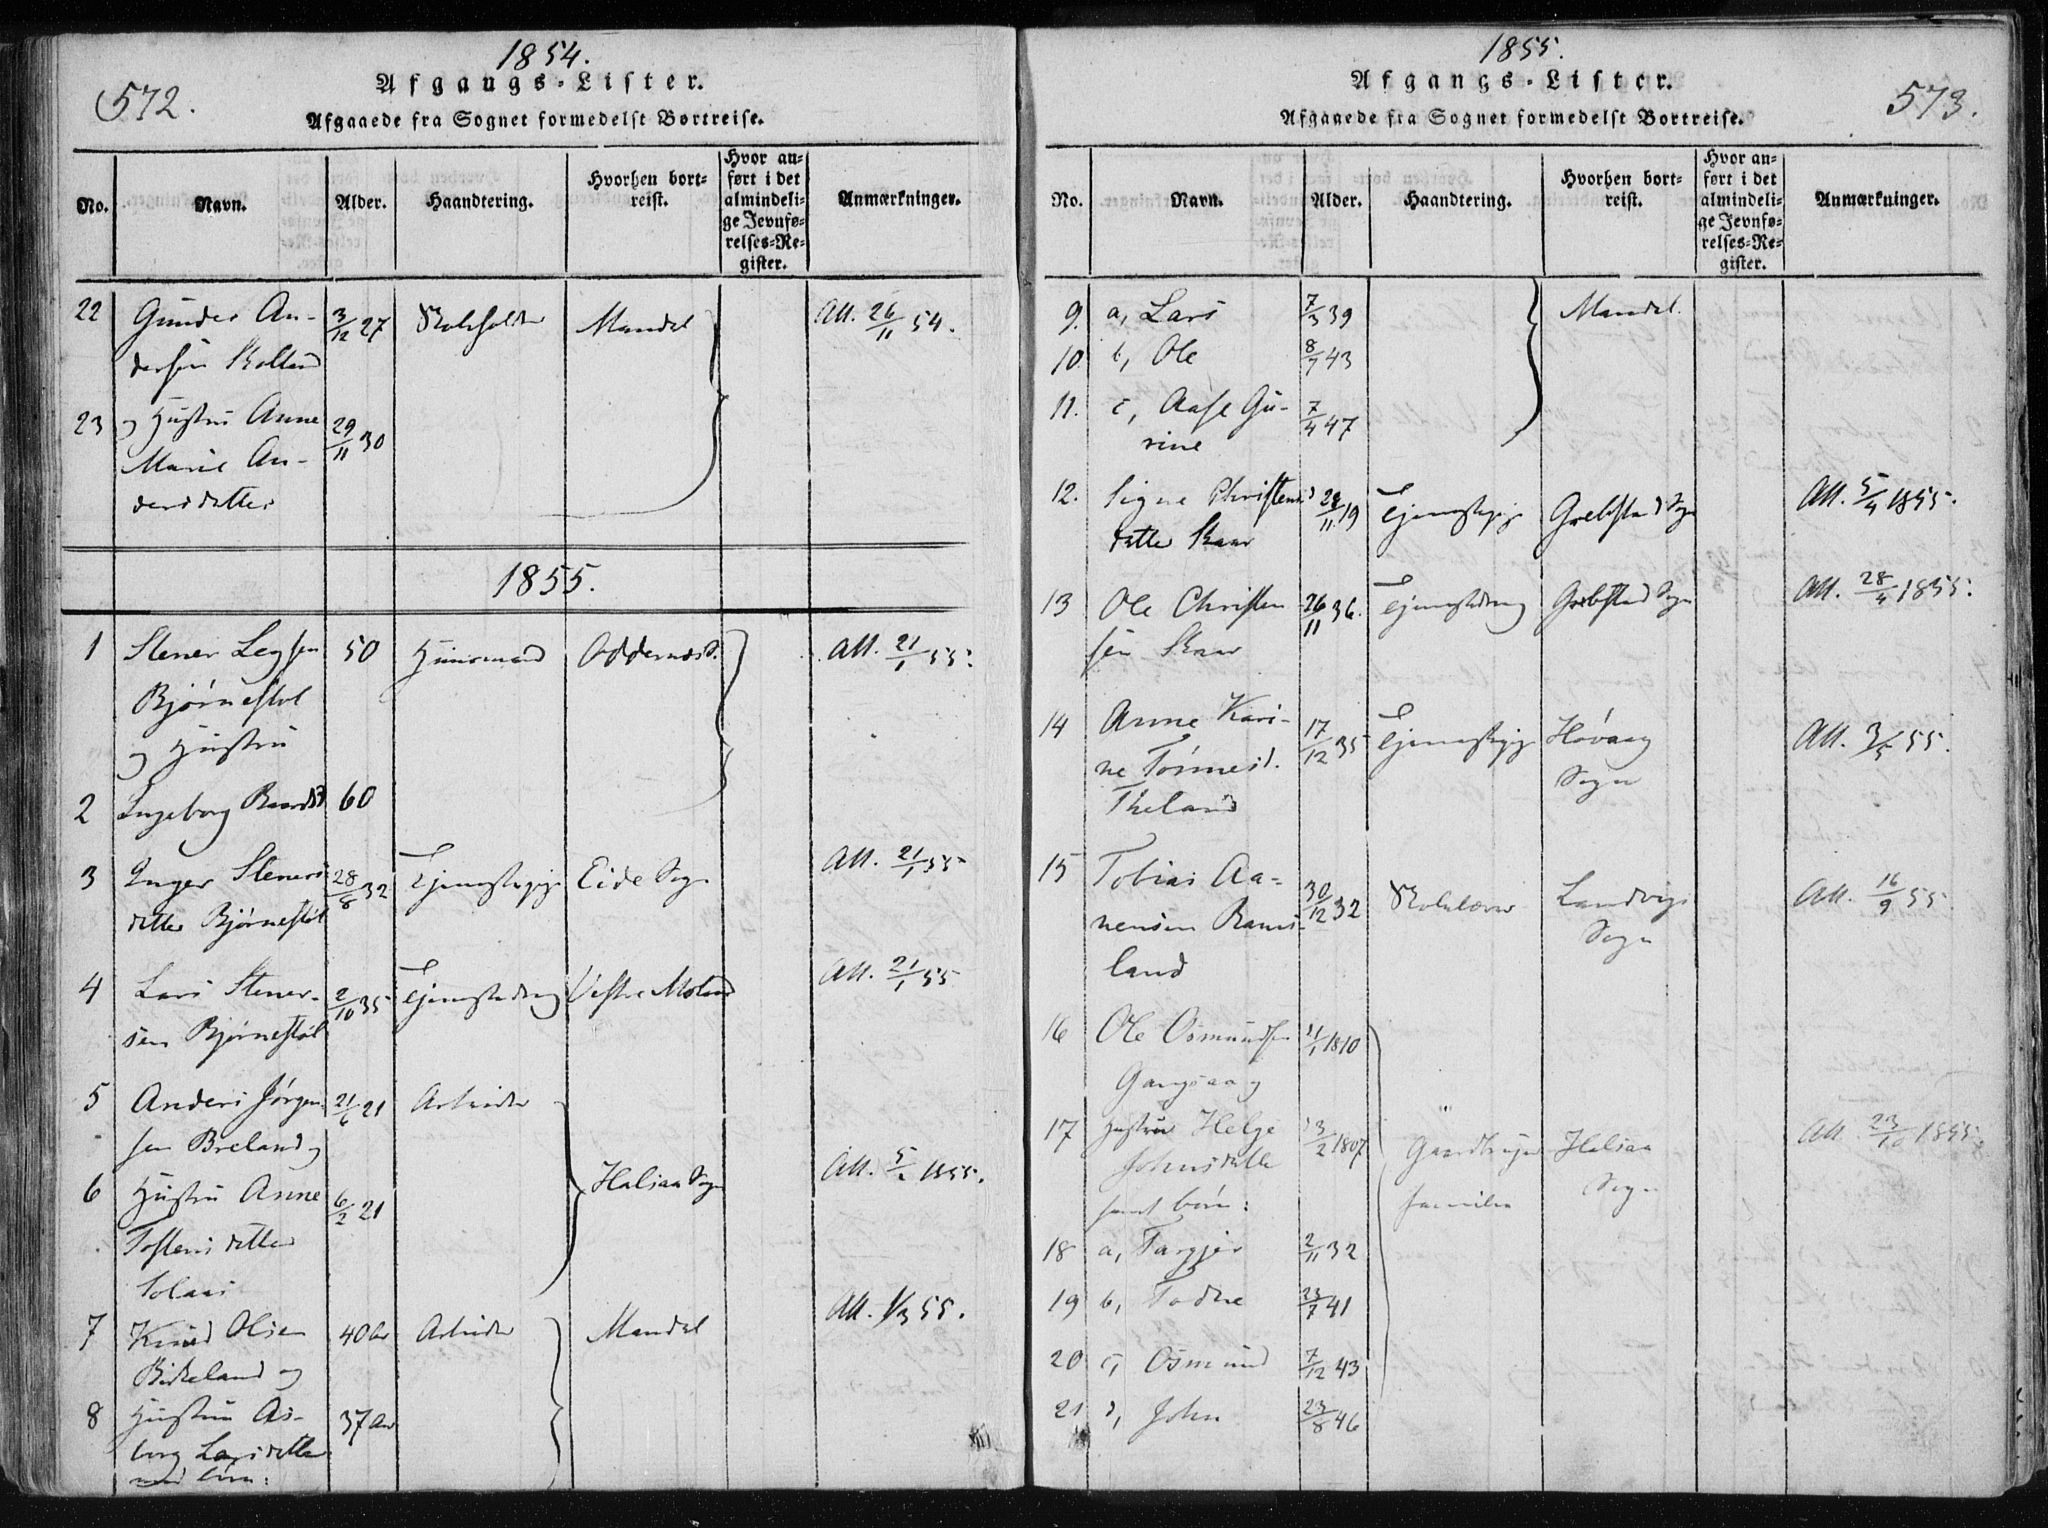 1854.
572.
Afgangs-Lister.
Afgaaede fra Sognet formedelst Bortreise.
No. Navn. Alder. Haandtering. Hvorhen bortreist. Hvor anført i det almindelige Jevnførelses-Register. Anmærkninger.
22 Gunder An- 3/12 27 Mandal Att. 26/11 54.
dersen
23 og Hustru Anne 29/11 30
Marie An-
dersdatter
1855.
1 Stener Leg sen 50 Huusmand Oddernæs S. Att. 21/1 55.
Bjørnestøl
og Hustru
2 Ingeborg Baardsd 60
3 Inger Steners 28/8 32 Tjenestepige Eide Sogn Att. 21/1 55
datter Bjørnestøl
4 Lars Stener- 2/10 35 Tjenestedreng Vestre Moland Att. 21/1 55
sen Bjørnestøl
5 Anders Jørgen 21/6 21 Arbeider
sen Breland og
6 Hustru Anne 6/2 21 Halsaa Sogn Att. 1855.
Tostensdatter
Solaas
7 Knud Olsen 40 Aar Arbeider Mandal Att. 1/3 55.
Birkeland og
8 Hustru As- 37 Aar
borg Larsdatter
med børn:
1855.
573.
Afgangs-Lister.
Afgaaede fra Sognet formedelst Bortreise.
No. Navn. Alder. Haandtering. Hvorhen bortreist. Hvor anført i det almindelige Jevnførelses-Register. Anmærkninger.
9. a, Lars 7/3 39 Mandal.
10. b, Ole 8/7 43
11. c, Aase Gu- 7/4 47
rine
12. Signe Christens 28/11 19 Tjenestepige Grebstad Sogn Att. 5/4 1855.
datter Skaar
13 Ole Christen 26/11 36. Tjenestedreng Grebstad Sogn Att. 28/4 1855.
sen Skaar
14 Anne Kari- 17/12 35 Tjenestepige Høvaag Att. 3/5 55.
ne Tønnesd. Sogn
Theland
15 Tobias Aa- 30/12 32 Landvig Att. 16/9 55.
nensen Rams- Sogn
land
16 Ole Osmundsen 1810
Gangsaa og
17 Hustru Helge 1807 Gaardbruger Halsaa Att. 23/10 1855.
Johnsdatter familie Sogn
samt børn:
18 a, Targjer 2/11 32
19 b, Todne 23/7 41
20 c, Osmund 7/12 43
21 d, John 23/8 46